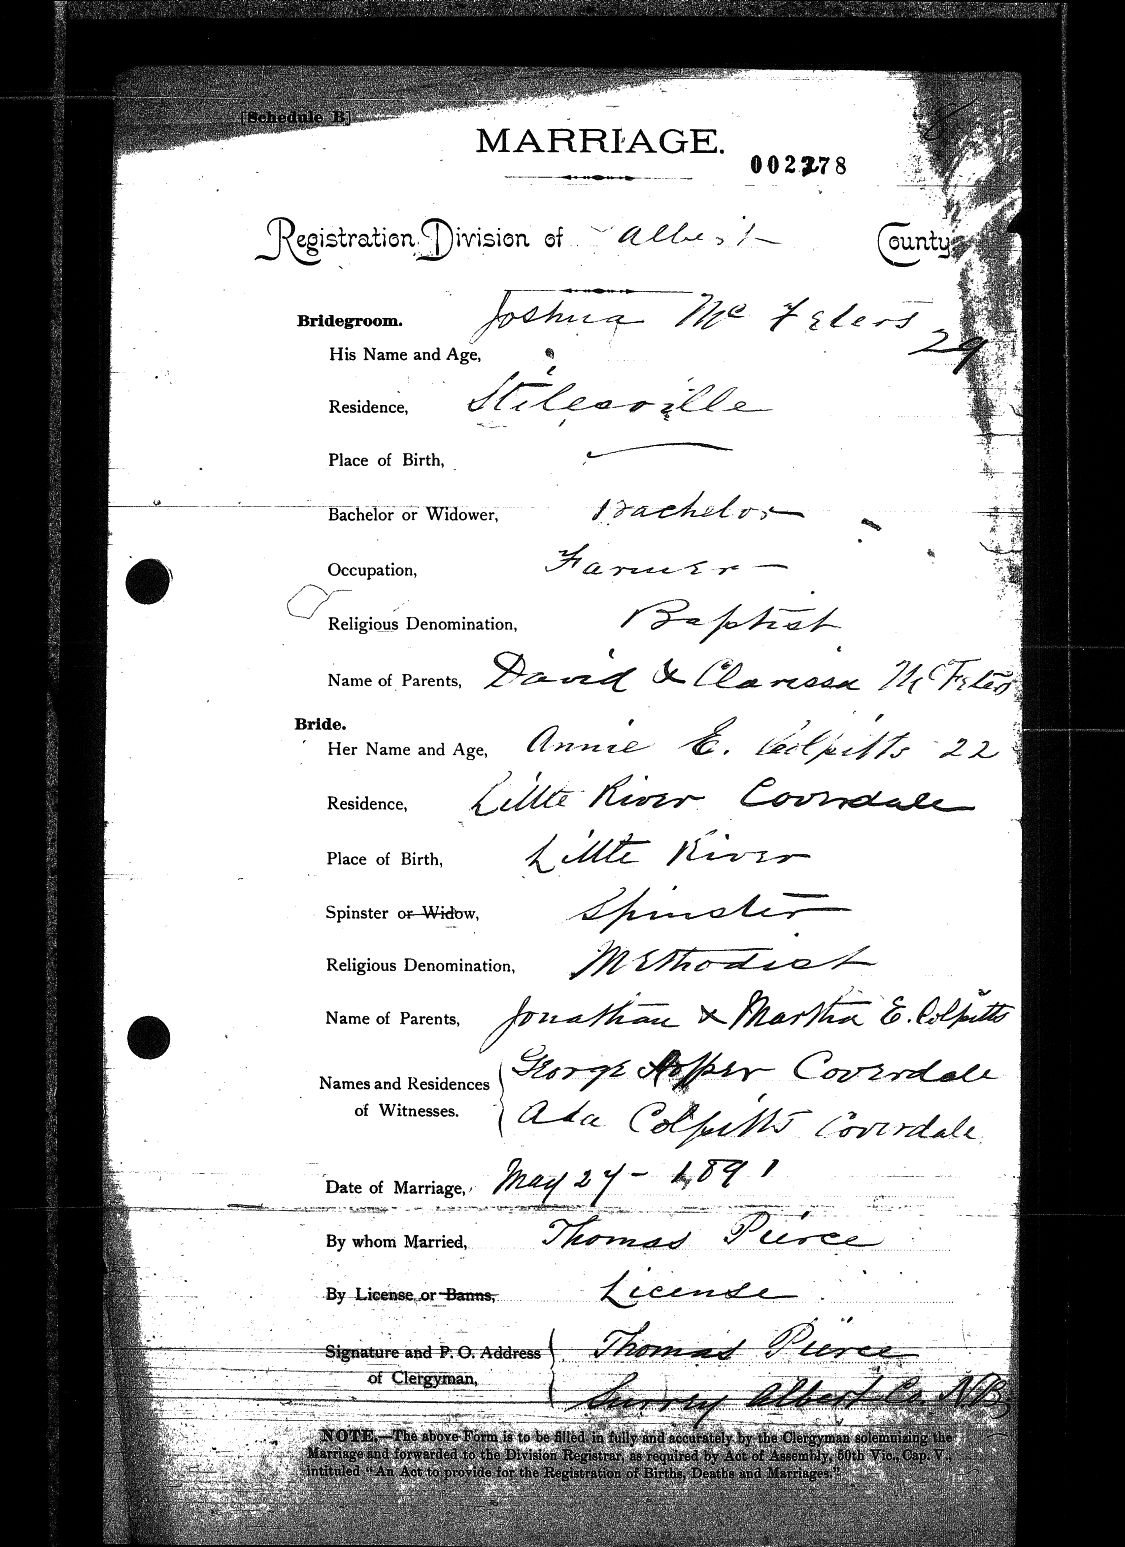 [Schedule B]
MARRIAGE.
002278
Registration Division of Albert County
Bridegroom. Joshua McFeters
His Name and Age, 29
Residence, Stilesville
Place of Birth,
Bachelor or Widower, Bachelor
Occupation, Farmer
Religious Denomination, Baptist
Name of Parents, David & Clarissa McFeters
Bride.
Her Name and Age, Annie E. Colpitts 22
Residence, Little River Coverdale
Place of Birth, Little River
Spinster or Widow, Spinster
Religious Denomination, Methodist
Name of Parents, Jonathan & Martha E. Colpitts
Names and Residences George Hopper Coverdale
of Witnesses. Ada Colpitts Coverdale
Date of Marriage, May 27 - 1891
By whom Married, Thomas Pierce
By License or Banns, License
Signature and P. O. Address Thomas Pierce
of Clergyman, Surrey Albert Co. NB
NOTE.—The above Form is to be filled in fully and accurately by the Clergyman solemnizing the
Marriage and forwarded to the Division Registrar, as required by Act of Assembly, 50th Vic., Cap. V.,
intituled "An Act to provide for the Registration of Births, Deaths and Marriages."